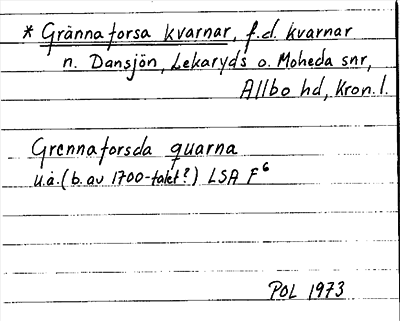 * Grännaforsa kvarnar, f.d. kvarnar
n. Dansjön, Lekaryds o. Moheda snr,
Allbo hd, Kron. l.
Grennaforsda quarna
u.å. (b. av 1700-talet?) LSA F⁶
POL 1973